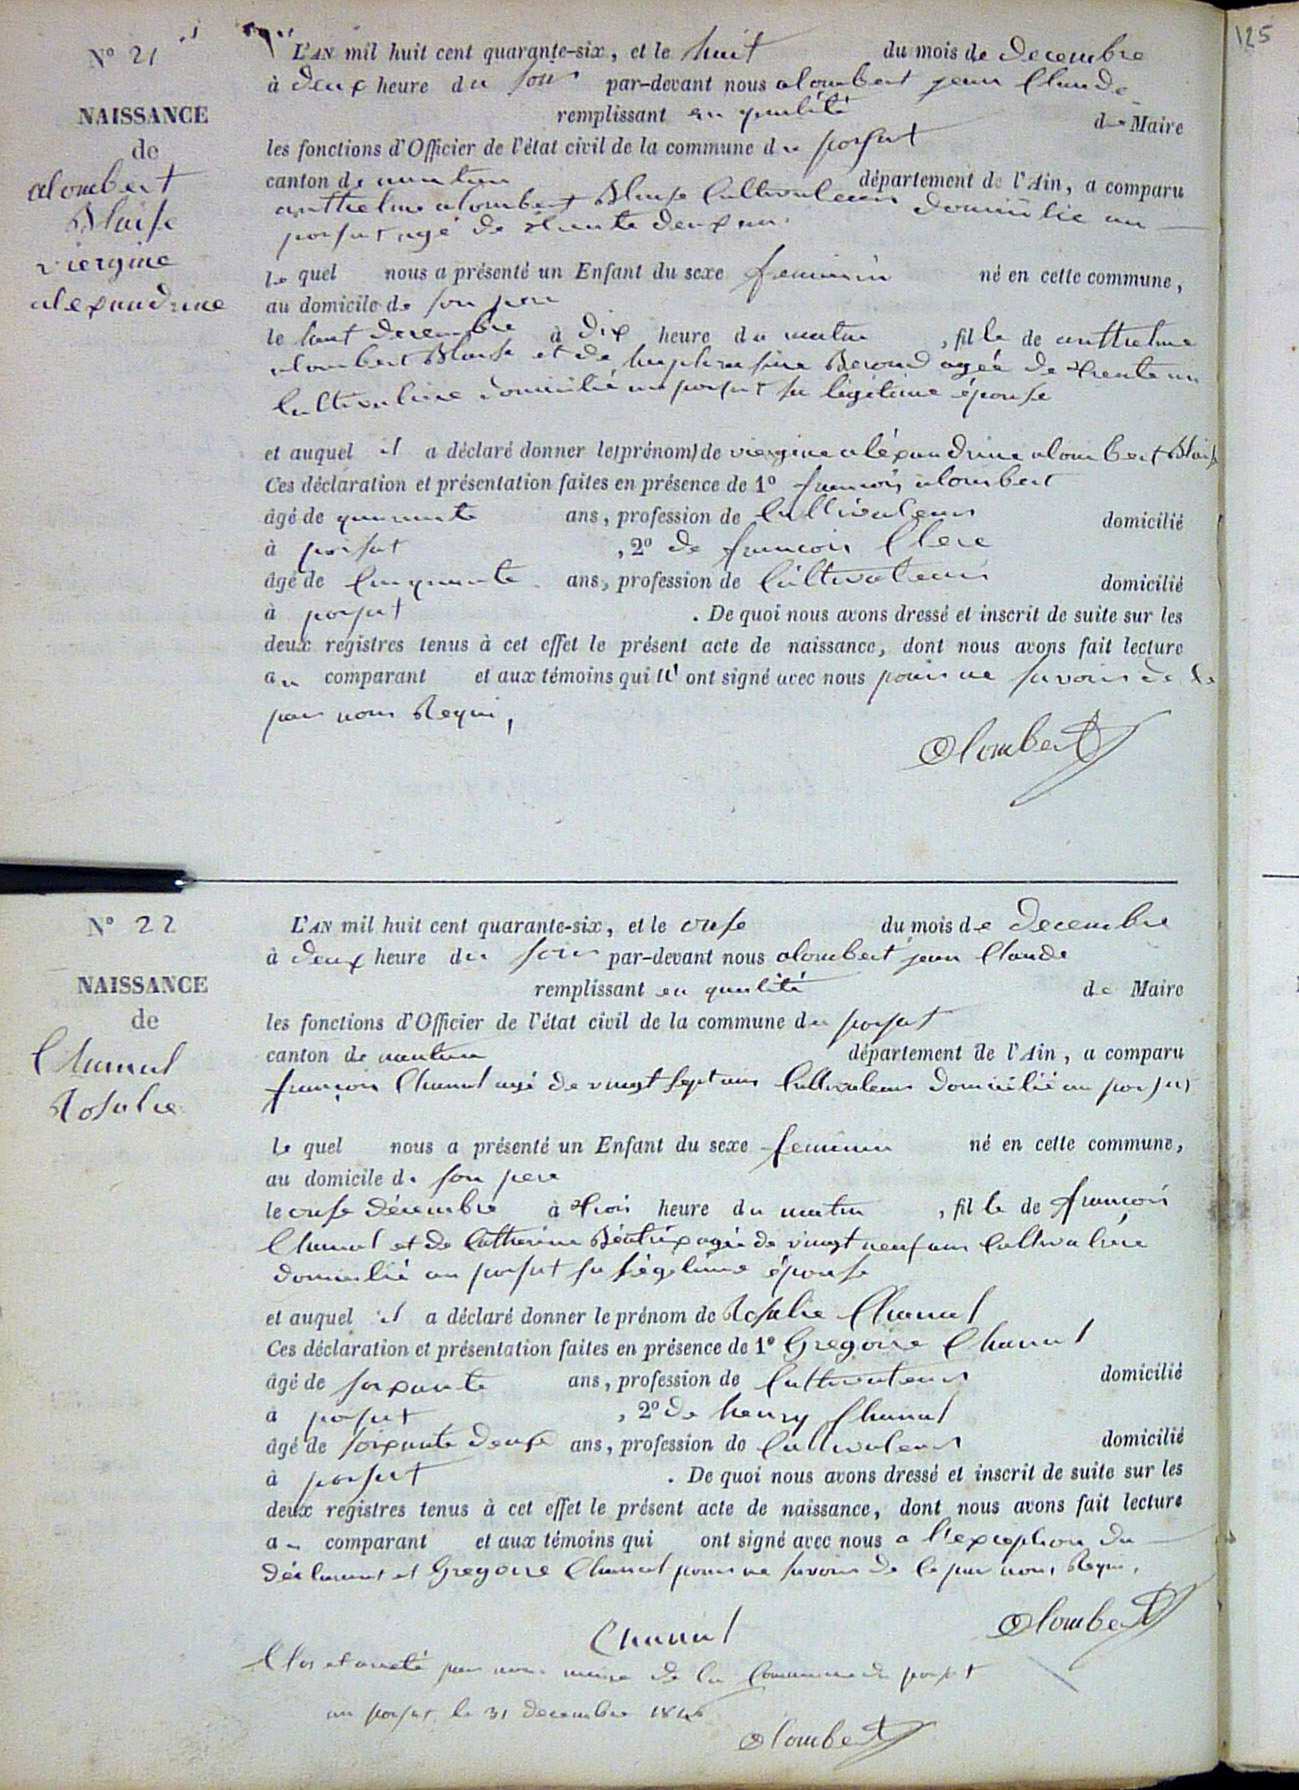 125
N° 21
NAISSANCE
de
alombert
Blaise
viergine
alexandrine
L'AN mil huit cent quarante-six, et le huit du mois de decembre
à deux heure du soir par-devant nous alombert jean Claude
remplissant en qualité de Maire
les fonctions d'Officier de l'état civil de la commune du porsat
canton de nantua département de l'Ain, a comparu
anthelme alombert Blaise Cultivateur domicilié au
porsat agé de trente deux ans
le quel nous a présenté un Enfant du sexe feminin né en cette commune,
au domicile de son pere
le huit decembre à dix heure du matin , fille de anthelme
alombert Blaise et de Berond agée de trente un
Cultivatrice domicilié au porsat sa légitime épouse
et auquel il a déclaré donner le(prénom) de viergine aléxandrine alombert Blaise
Ces déclaration et présentation faites en présence de 1° francois alombert
âgé de quarante ans, profession de Cultivateur domicilié
à porsat , 2° de francois Clerc
âgé de Cinquante ans, profession de Cultivateur domicilié
à porsat . De quoi nous avons dressé et inscrit de suite sur les
deux registres tenus à cet effet le présent acte de naissance, dont nous avons fait lecture
au comparant et aux témoins qui n' ont signé avec nous pour ne savoir de le
par nous Requi,
alombert
N° 22
NAISSANCE
de
Chanal
Rosalie
L'AN mil huit cent quarante-six, et le onse du mois de decembre
à deux heure du soir par-devant nous alombert jean Claude
remplissant en qualité de Maire
les fonctions d'Officier de l'état civil de la commune du porsat
canton de nantua département de l'Ain, a comparu
françois Chanal agé de vingt sept ans Cultivateur domicilié au porsat
le quel nous a présenté un Enfant du sexe feminin né en cette commune,
au domicile de son pere
le onse décembre à trois heure du matin , fille de françois
Chanal et de Catherine Béatrix agée de vingt neuf ans Cultivatrice
domicilié au porsat sa légitime épouse
et auquel il a déclaré donner le prénom de Rosalie Chanal
Ces déclaration et présentation faites en présence de 1° Gregoire Chanal
âgé de soixante ans, profession de Cultivateur domicilié
à porsat , 2° de henry Chanal
âgé de soixante deuse ans, profession de Cultivateur domicilié
à porsat . De quoi nous avons dressé et inscrit de suite sur les
deux registres tenus à cet effet le présent acte de naissance, dont nous avons fait lecture
au comparant et aux témoins qui ont signé avec nous a l'exception du
déclarant et Gregoire Chanal pour ne savoir de le par nous Requi,
Chanal alombert
Clos et arreté par nous maire de la Commune du porsat
au porsat le 31 decembre 1846
alombert